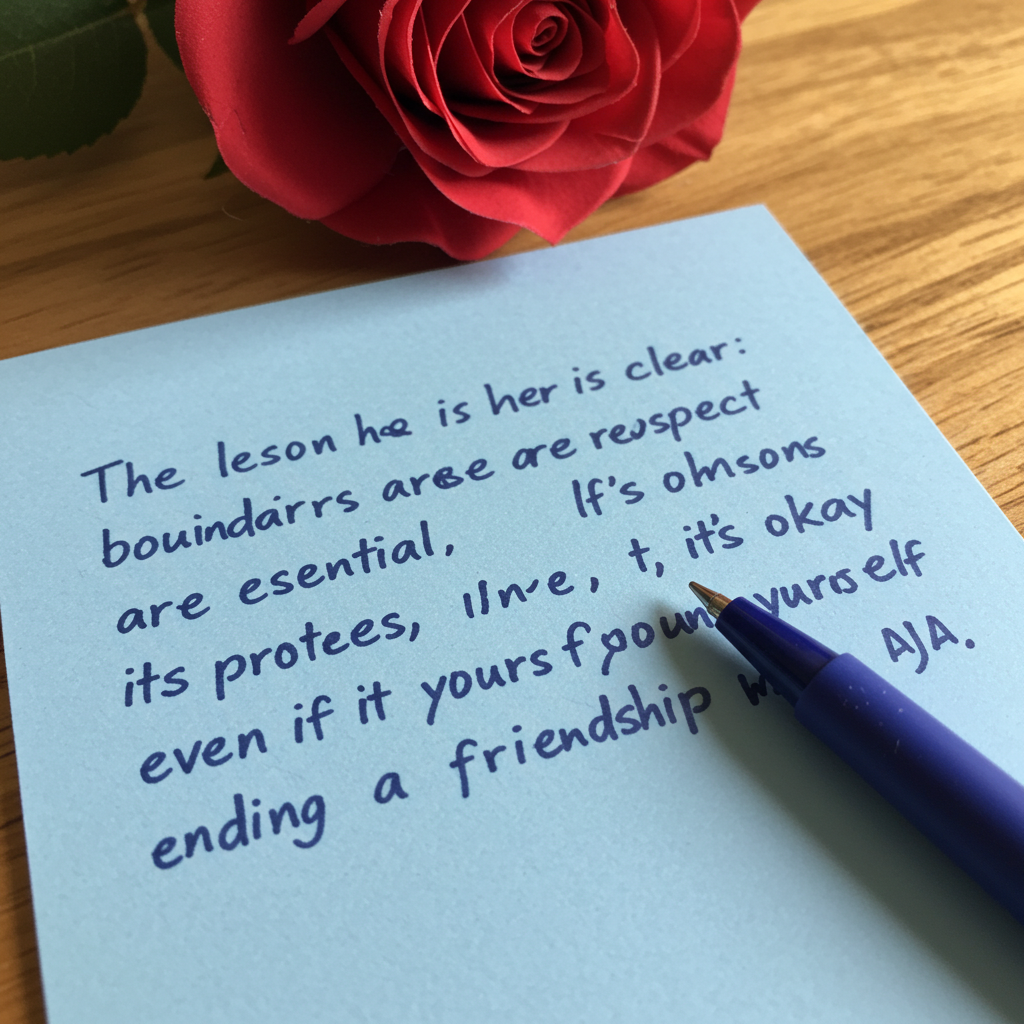 The leson hae is her is clear:
bouindairrs arese are reuspect
are esential, If's ohnsons
its protees, t, it's okay
even if it yours yurrself
ending a friendship AJA.